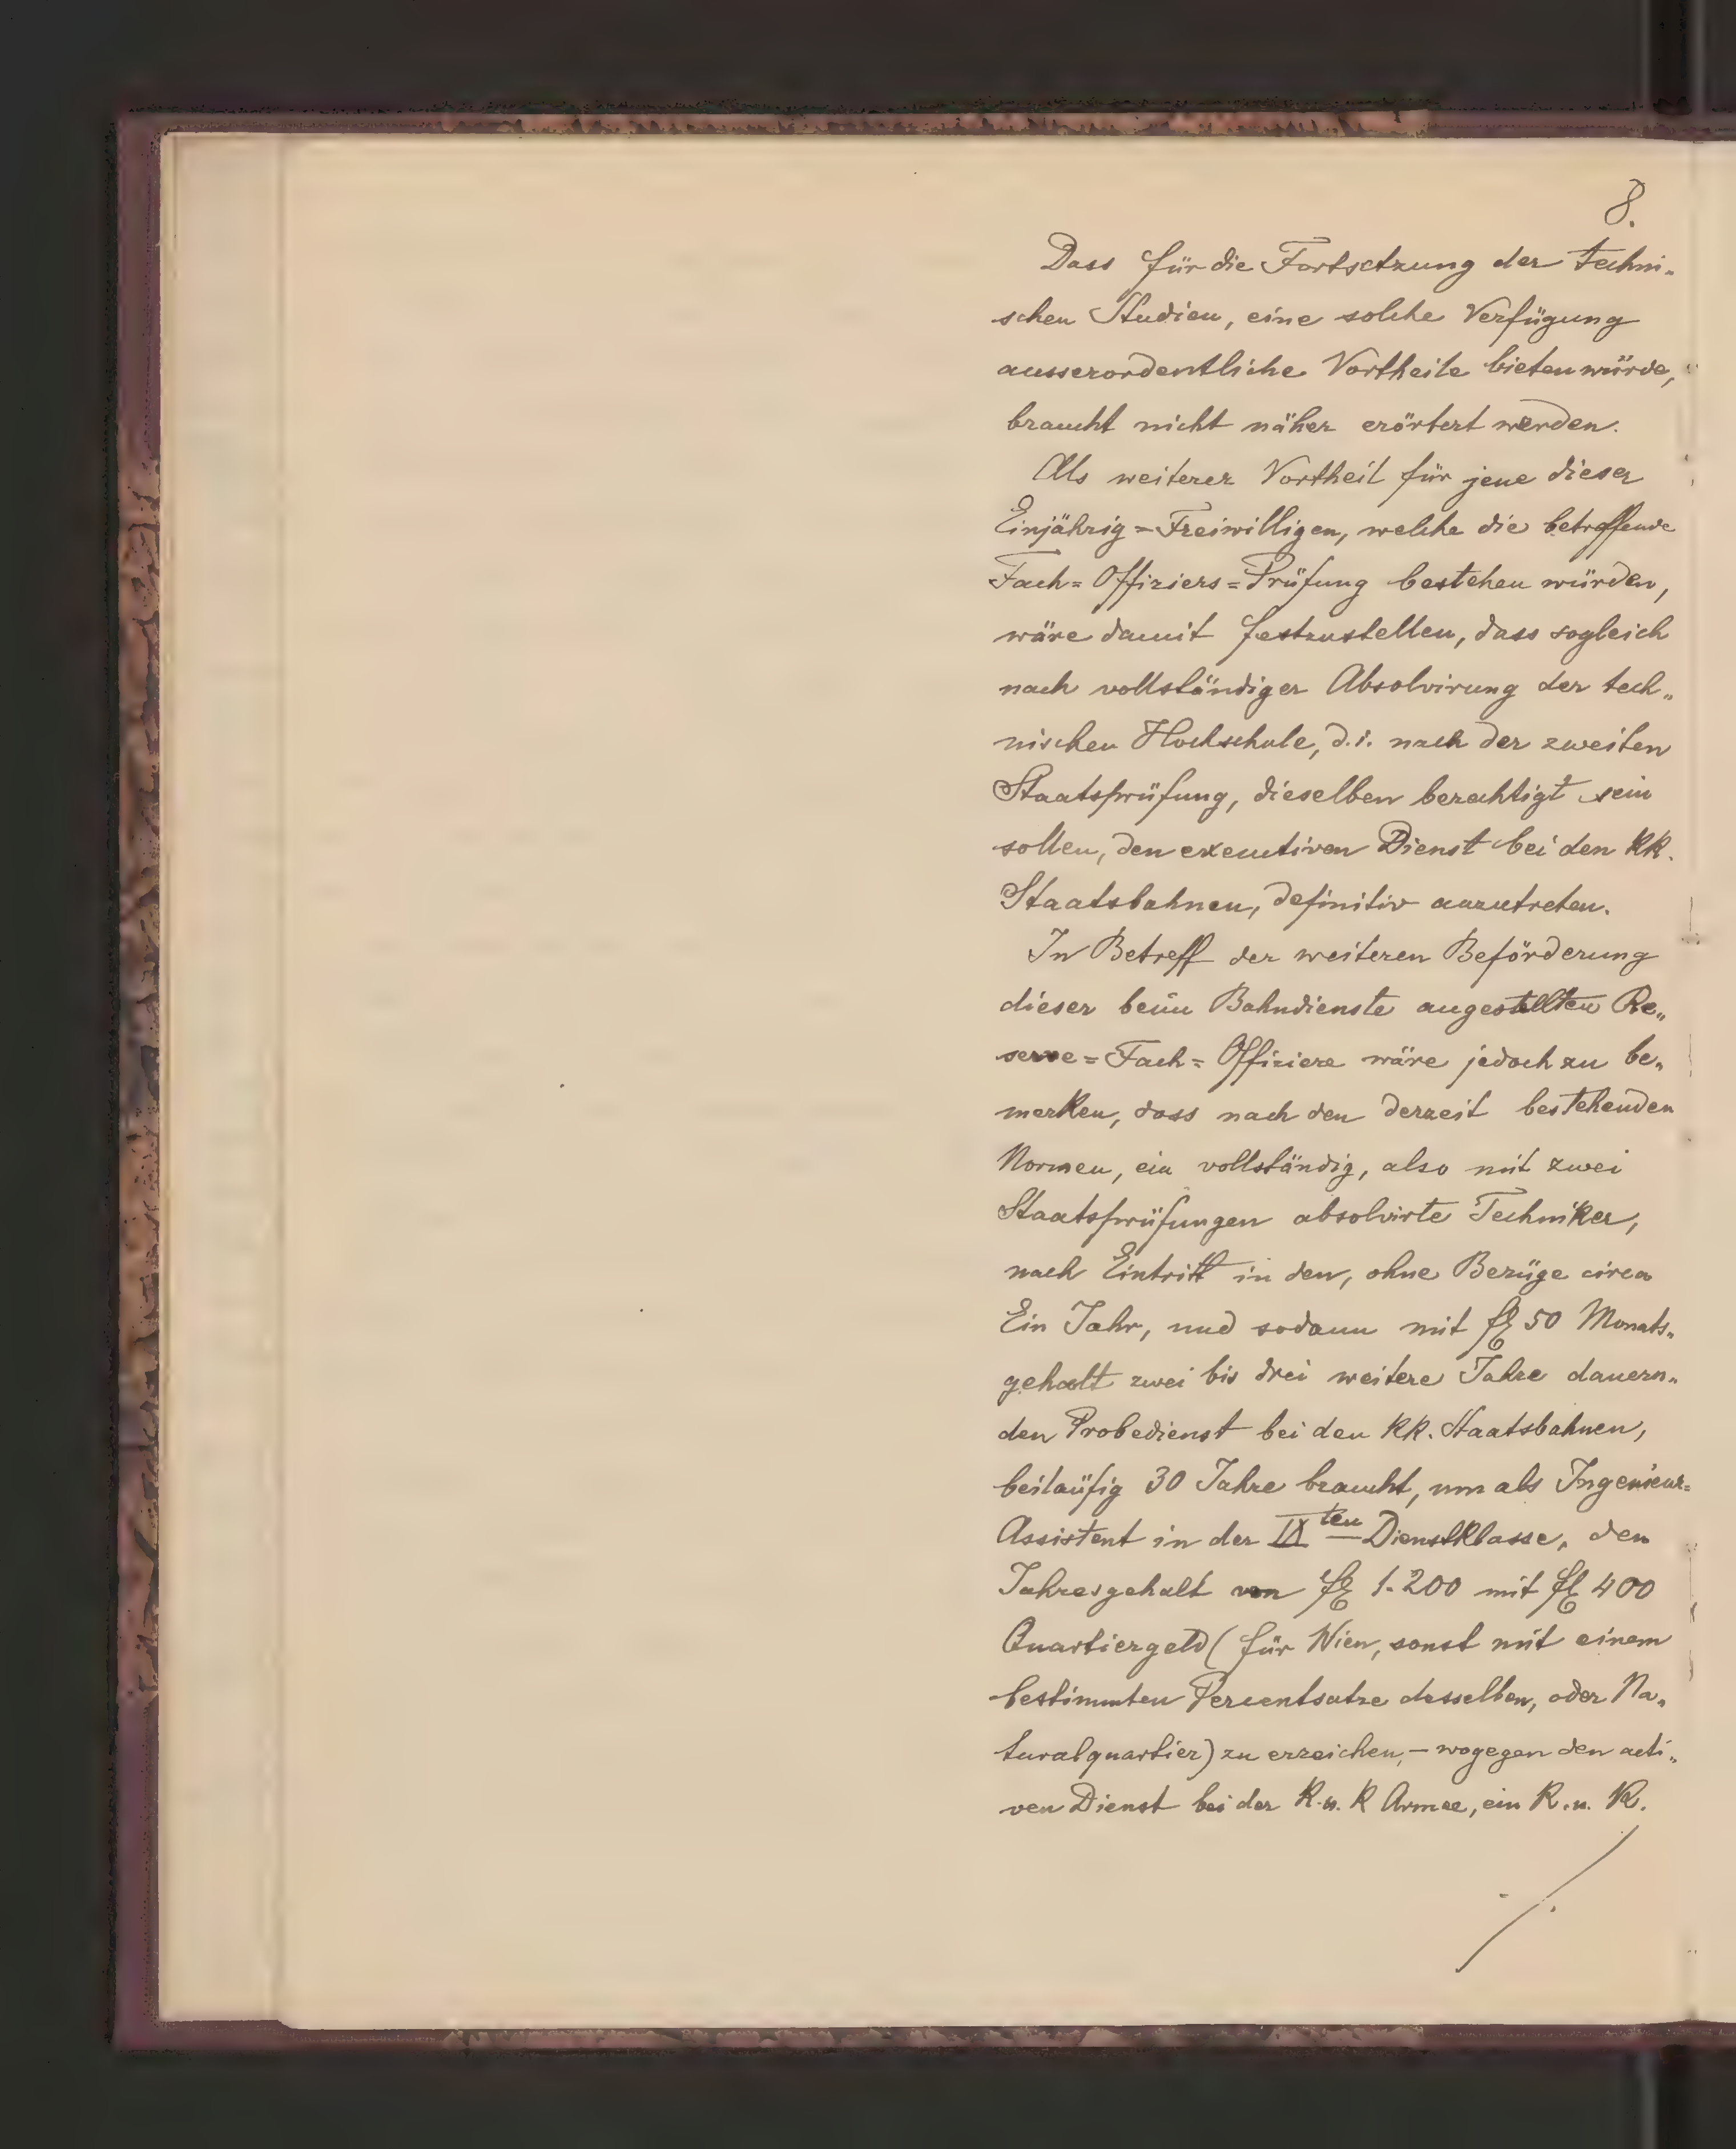 8.
Dass für die Fortsetzung der techni-
schen Studien, eine solche Verfügung
ausserordentliche Vortheile bieten würde,
braucht nicht näher erörtert werden.
Als weiterer Vortheil für jene dieser
Einjährig=Freiwilligen, welche die betreffende
Fach=Offiziers=Prüfung bestehen würden,
wäre damit festzustellen, dass sogleich
nach vollständiger Absolvirung der tech-
nischen Hochschule, d.i. nach der zweiten
Staatsprüfung, dieselben berechtigt sein
sollen, den executiven Dienst bei den kk.
Staatsbahnen, definitiv anzutreten.
In Betreff der weiteren Beförderung
dieser beim Bahndienste angestellten Re-
serve=Fach=Offiziere wäre jedoch zu be-
merken, dass nach den derzeit bestehenden
Normen, ein vollständig, also mit zwei
Staatsprüfungen absolvirte Techniker,
nach Eintritt in den, ohne Bezüge circa
Ein Jahr, und sodann mit fl 50 Monats-
gehalt zwei bis drei weitere Jahre dauern-
den Probedienst bei den kk. Staatsbahnen,
beiläufig 30 Jahre braucht, um als Ingenieur=
Assistent in der IX ten Dienstklasse, den
Jahresgehalt von fl 1.200 mit fl 400
Quartiergeld (für Wien, sonst mit einem
bestimmten Percentsatze desselben, oder Na-
turalquartier) zu erreichen, – wogegen den acti-
ven Dienst bei der k.u. k Armee, ein k.u. k.
./.